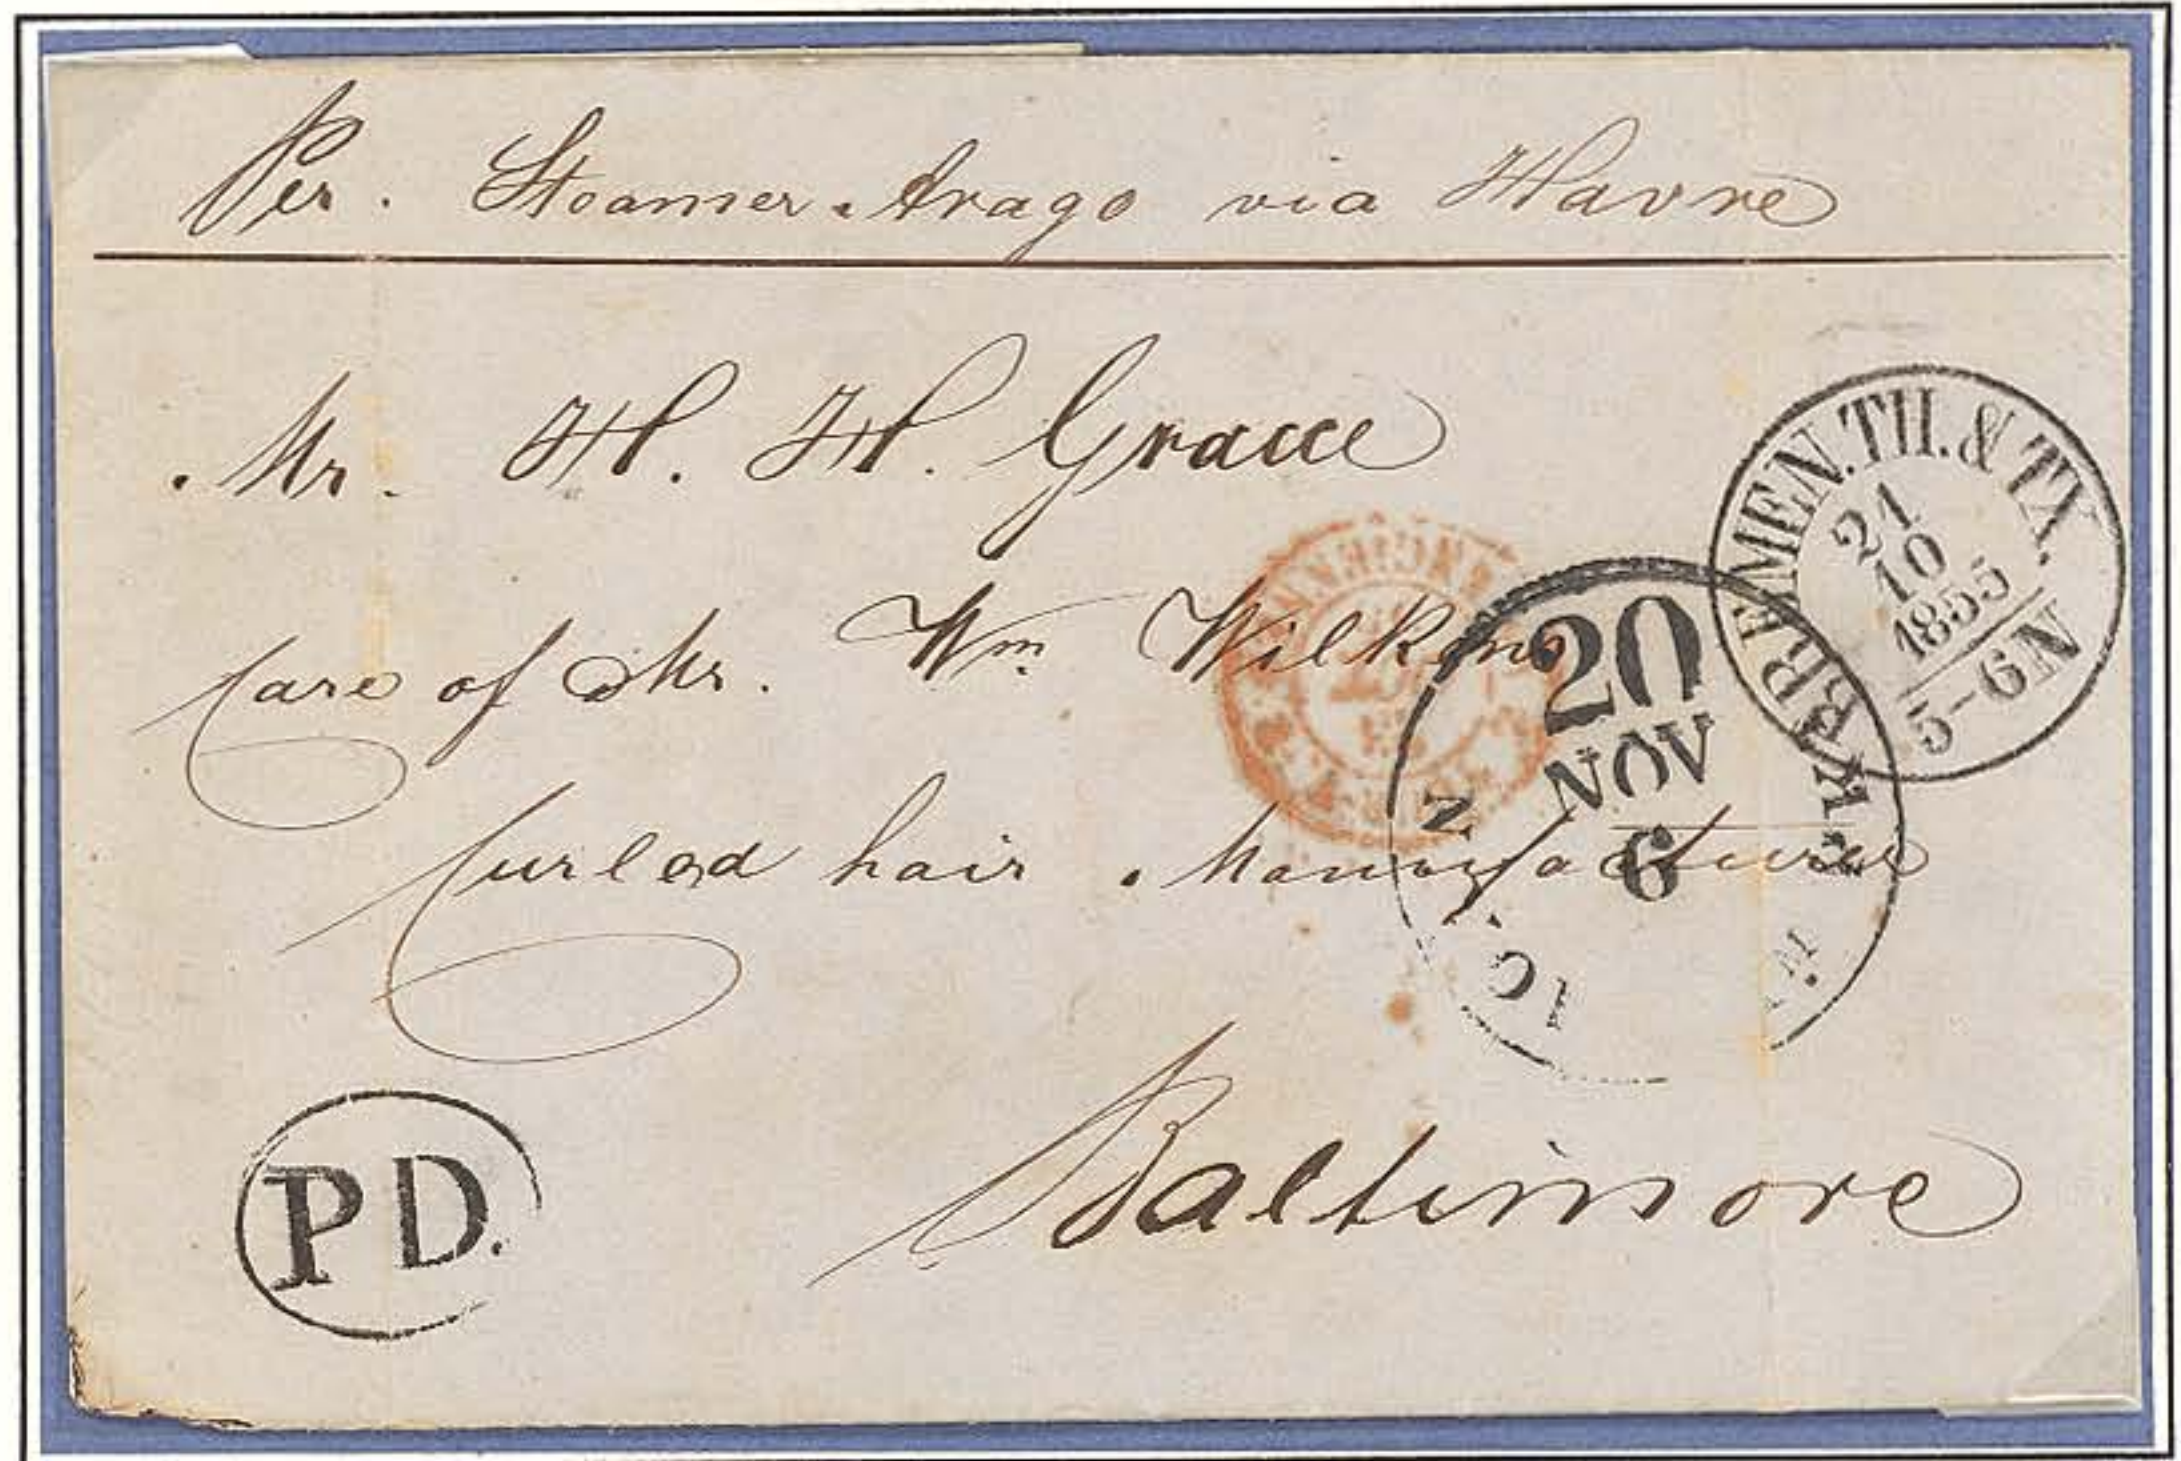 Per. Steamer Arago via Havre
Mr. H. H. Graue
Care of Mr. Wm Wilkens
Curled hair Manufacturer
Baltimore
BREMEN.TH.&TX.
21
10
1855
5-6N
20
NOV
6
PD.